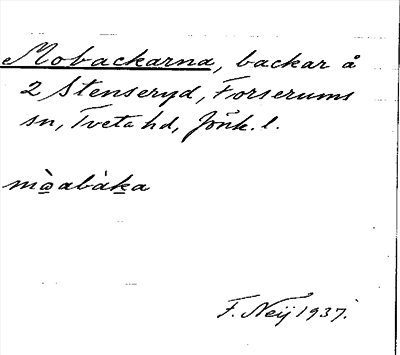 Mobackarna, backar å
2 Stenseryd, Forserums
sn, Tveta hd, Jönk. l.
mòạabàḵa
F. Neij 1937.